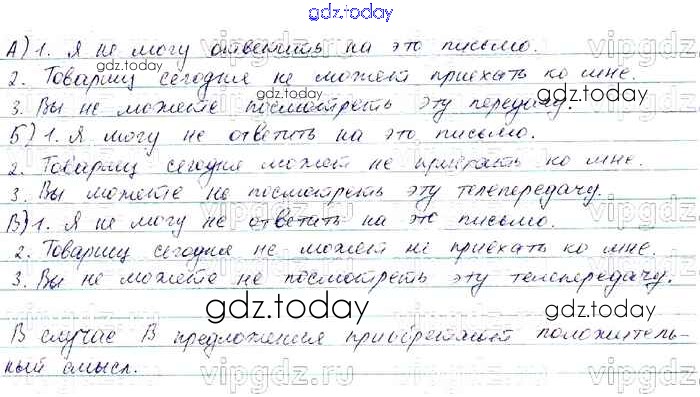 gdz.today
А) 1. Я не могу ответить на это письмо.
gdz.today
2. Товарищ сегодня не может приехать ко мне.
gdz.today
3. Вы не можете посмотреть эту передачу.
Б) 1. Я могу не ответить на это письмо.
2. Товарищ сегодня может не приехать ко мне.
3. Вы можете не посмотреть эту телепередачу.
В) 1. Я не могу не ответить на это письмо.
2. Товарищ сегодня не может не приехать ко мне.
3. Вы не можете не посмотреть эту телепередачу.
gdz.today
gdz.today
В случае В предложения приобретают положитель-
ный смысл.
vipgdz.ru